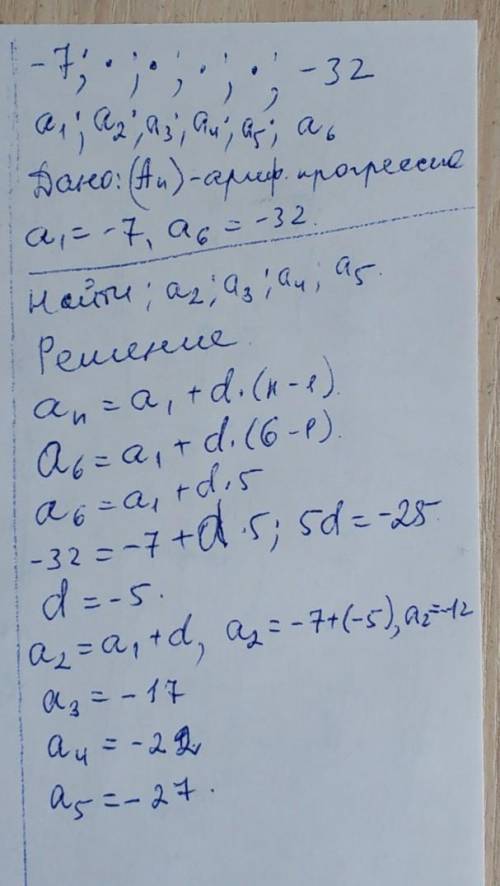 -7; ·; ·; ·; ·; -32
a₁; a₂; a₃; a₄; a₅; a₆
Дано: (Aₙ) - ариф. прогрессия
a₁ = -7, a₆ = -32.
Найти; a₂; a₃; a₄; a₅.
Решение
aₙ = a₁ + d·(n-1).
a₆ = a₁ + d·(6-1).
a₆ = a₁ + d·5
-32 = -7 + d·5; 5d = -25
d = -5.
a₂ = a₁ + d, a₂ = -7+(-5), a₂ = -12
a₃ = -17
a₄ = -22
a₅ = -27.